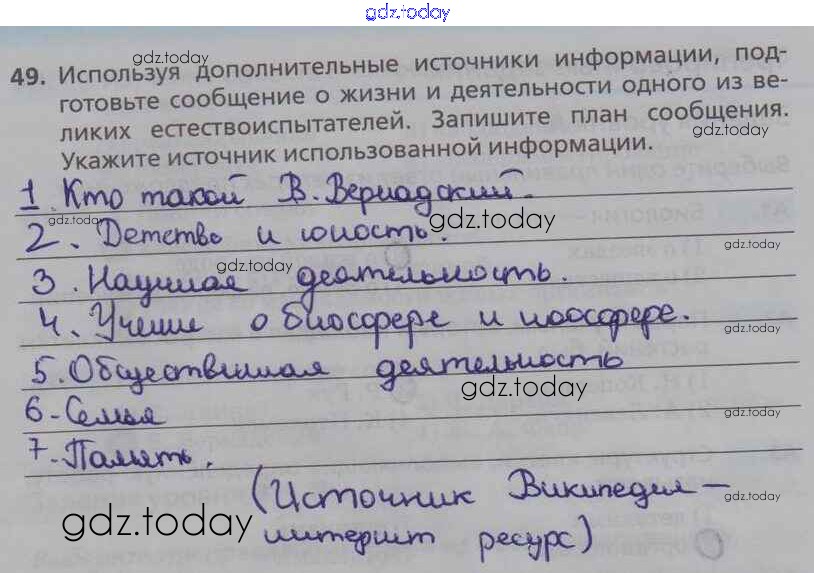 gdz.today
49. Используя дополнительные источники информации, под-
готовьте сообщение о жизни и деятельности одного из ве-
ликих естествоиспытателей. Запишите план сообщения.
Укажите источник использованной информации.
1. Кто такой В. Вернадский.
2. Детство и юность.
3. Научная деятельность.
4. Учение о биосфере и ноосфере.
5. Общественная деятельность
6. Семья
7. Память.
(Источник Википедия –
интернет ресурс)
gdz.today
gdz.today
gdz.today
gdz.today
gdz.today
gdz.today
gdz.today
gdz.today
gdz.today
gdz.today
gdz.today
gdz.today